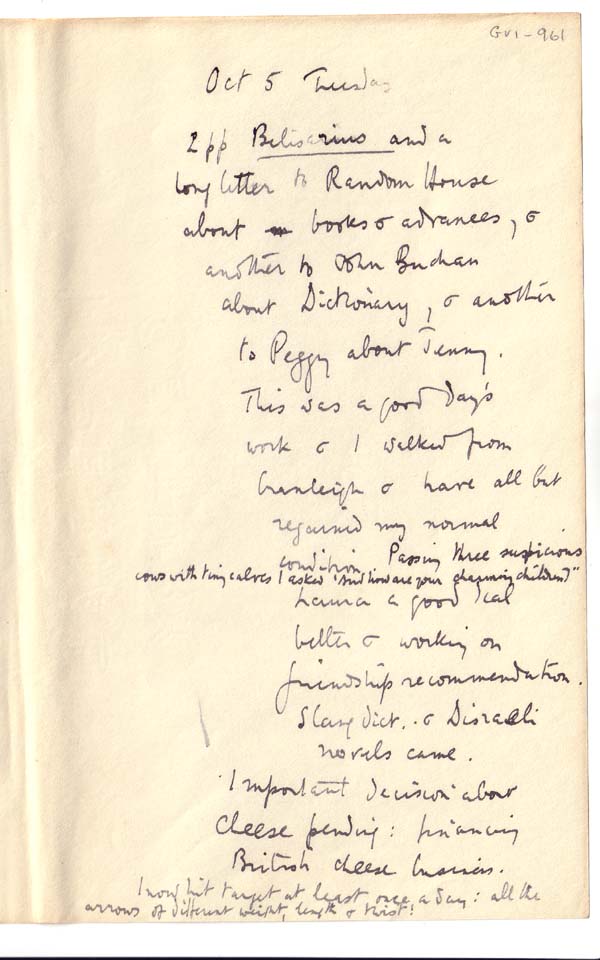 GVI - 961
Oct 5 Tuesday
2 pp Belisarius and a
long letter to Random House
about books & advances, &
another to John Buchan
about Dictionary, & another
to Peggy about Jenny.
This was a good day's
work & I walked from
Cranleigh & have all but
regained my normal
condition. Passing three suspicious
cows with tiny calves I asked "And how are your charming children?"
Laura a good deal
better & working on
friendship recommendation.
Slang dict. & Disraeli
novels came.
'Important decision' about
cheese pending: financing
British cheese business.
I now hit target at least once a day: all the
arrows of different weight, length & twist!